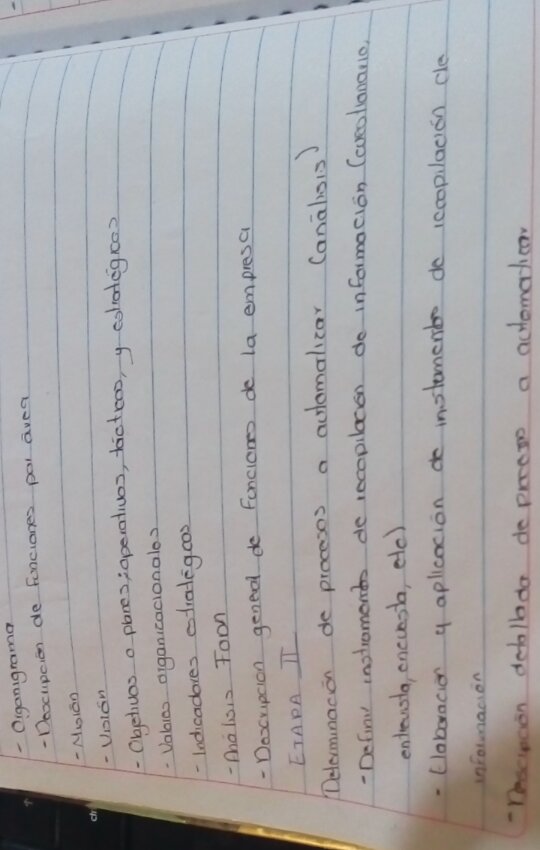 - Organigrama
- Descripción de Funciones por área
- Misión
- Visión
- Objetivos o planes; operativos, tácticos, y estratégicos
- Valores organizacionales
- Indicadores estratégicos
- Análisis FODA
- Descripcion general de Funciones de la empresa
ETAPA II
Determinación de procesos a automatizar (análisis)
- Definir instrumentos de recopilación de información (cuestionario,
entrevista, encuesta, etc)
- Elaboracion y aplicación de instumentos de recopilación de
información
- Descripción detallada de proceso a automatizar